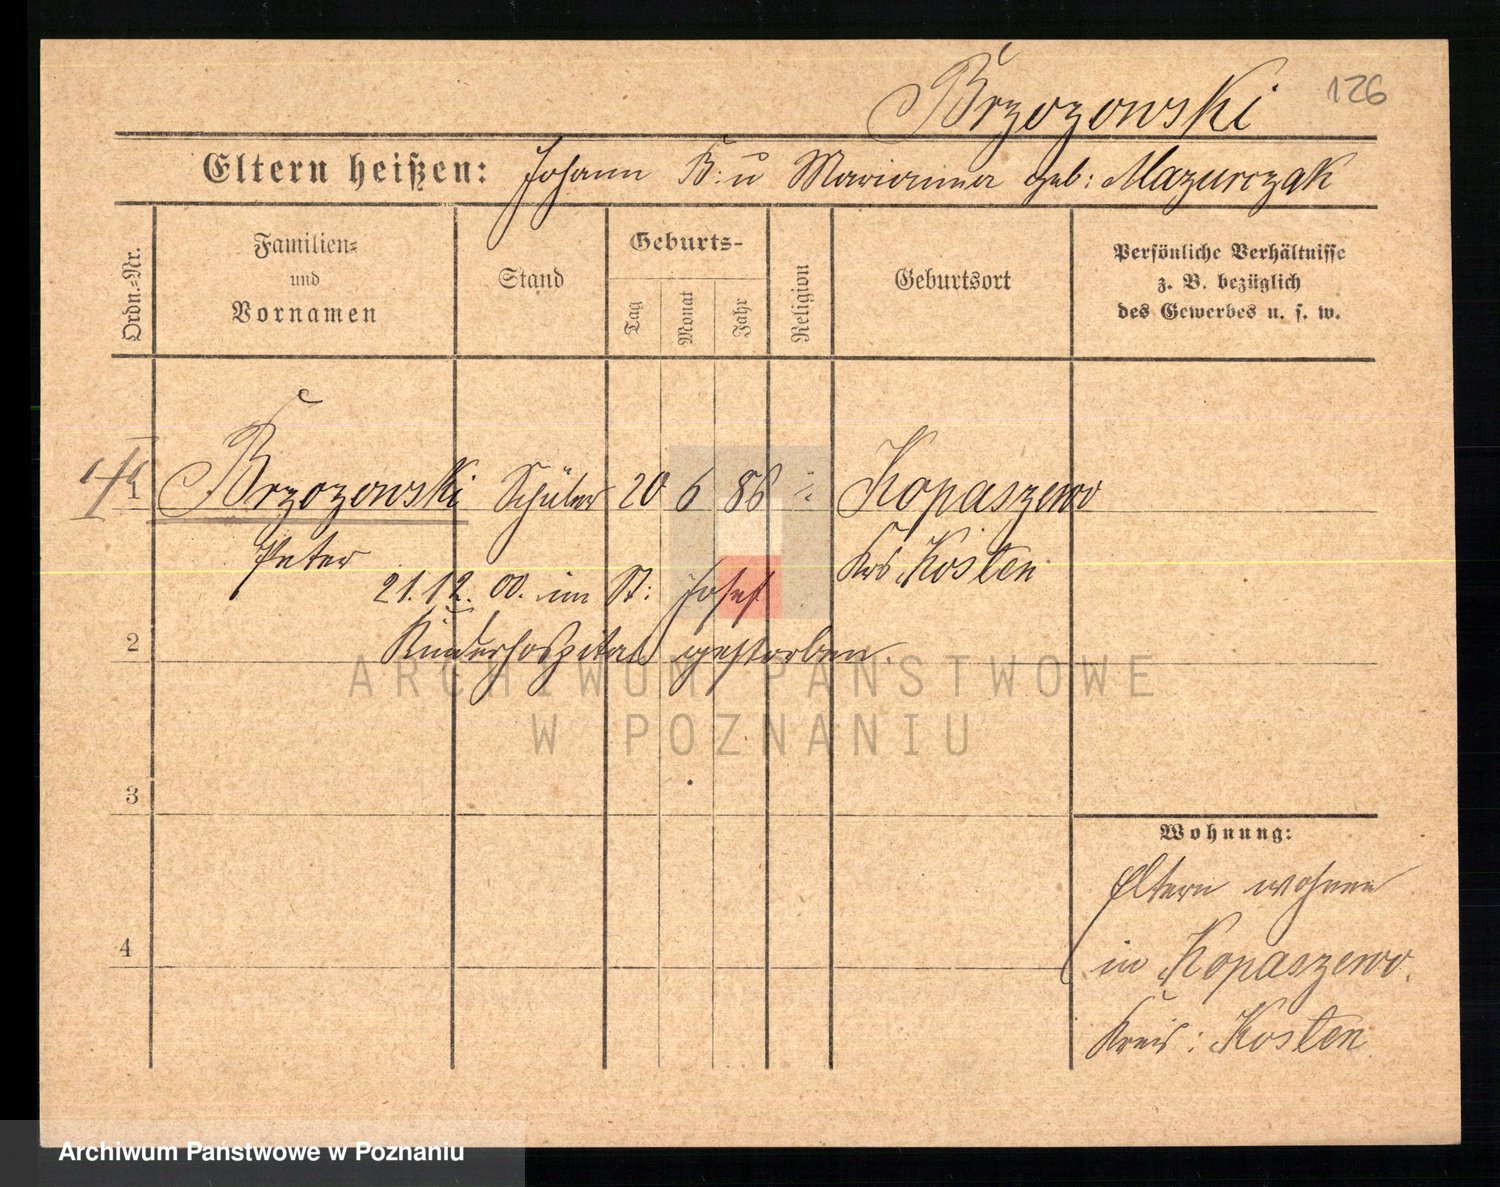 Brzozowski 126
Eltern heißen: Johann B: u Marianna geb: Mazurczak
Ordn.=Nr.
Familien=
und
Vornamen
Stand
Geburts-
Tag
Monat
Jahr
Religion
Geburtsort
Persönliche Verhältnisse
z. B. bezüglich
des Gewerbes u. s. w.
1 Brzozowski Schüler 20 6 86 Kopaszewo
Peter Krs Kosten
21.12.00. im St: Josef
2 Kinderhospital gestorben.
ARCHIWUM PAŃSTWOWE
W POZNANIU
3
Wohnung:
Eltern wohnen
4 in Kopaszewo.
Kreis: Kosten
Archiwum Państwowe w Poznaniu